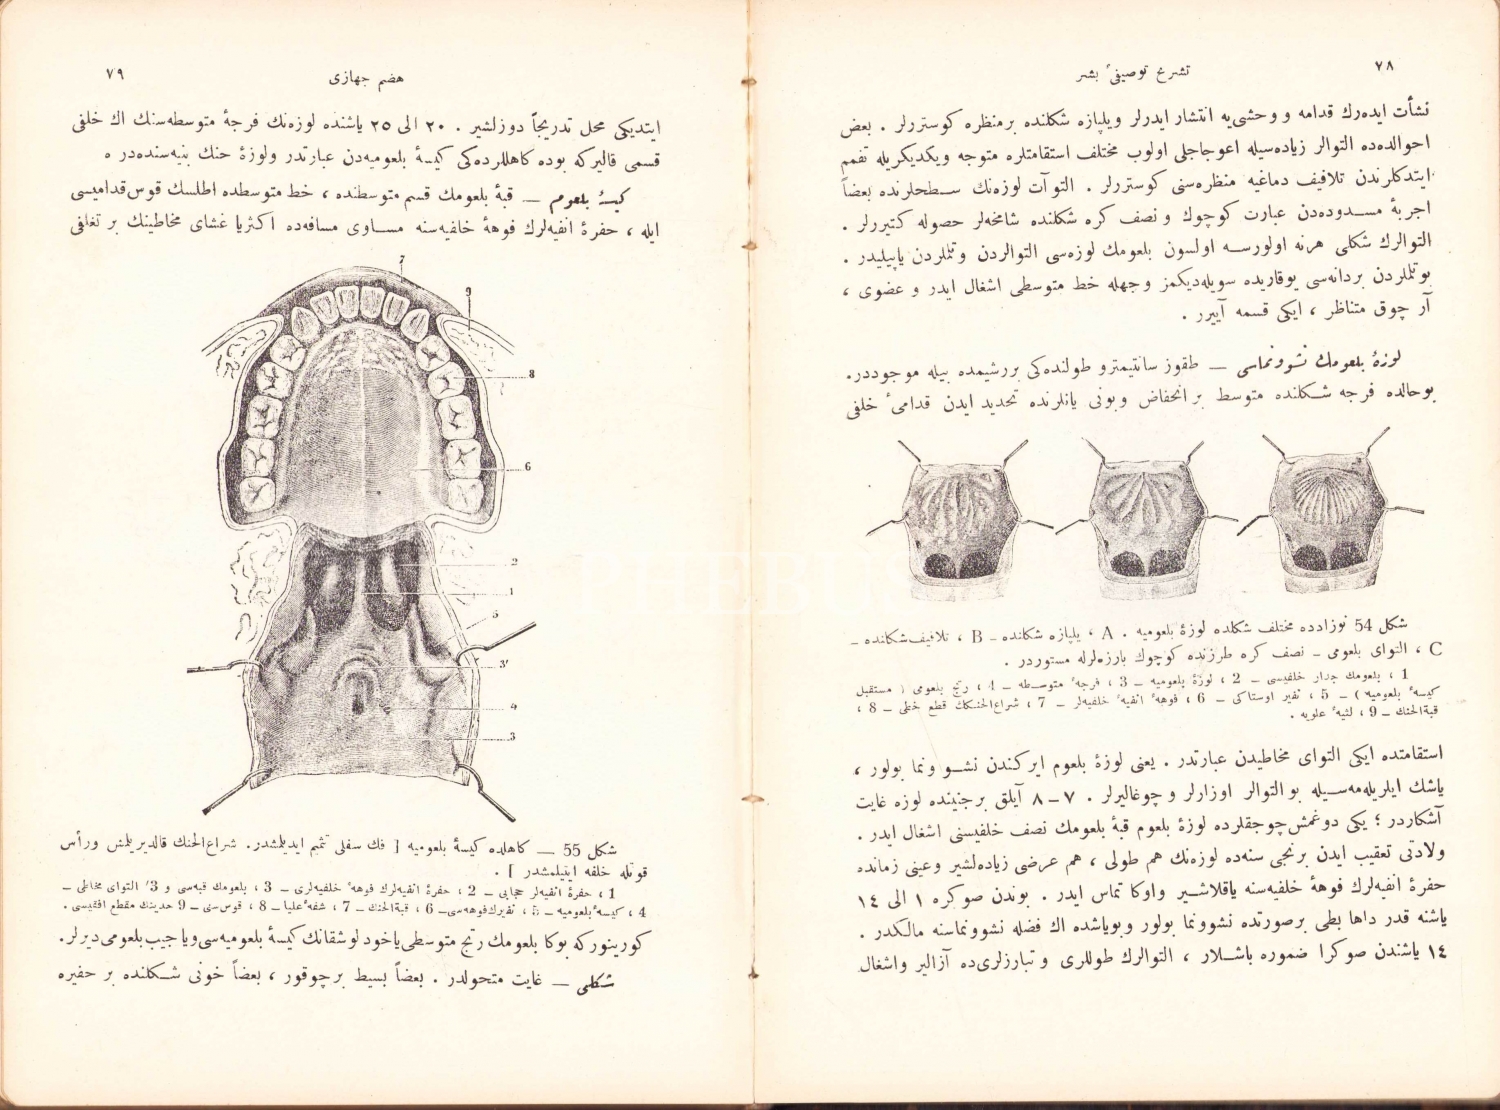 ٧٨
تشريح توصيفئ بشر
نشأت ايده‌رك قدامه و وحشى‌يه انتشار ايدرلر ويلپازه شكلنده برمنظره كوستررلر . بعض
احوالده‌ده التوالر زياده‌سيله اعوجاجلى اولوب مختلف استقامتلره متوجه ويكديكريله تفمم
ايتدكلرندن تلافيف دماغيه منظره‌سنى كوستررلر . التوآت لوزه‌نك سطحلرنده بعضاً
اجربهٔ مسدوده‌دن عبارت كوچوك و نصف كره شكلنده شامخه‌لر حصوله كتيررلر .
التوالرك شكلى هرنه اولورسه اولسون بلعومك لوزه‌سى التوالردن و تلملردن ياپيليدر .
بوتلملردن بردانه‌سى يوقاريده سويله‌ديكمز وجهله خط متوسطى اشغال ايدر و عضوى ،
آز چوق متناظر ، ايكى قسمه آييرر .
لوزهٔ بلعومك نشوونماسى — طقوز سانتيمترو طولنده‌كى بررشيمده بيله موجوددر.
بوحالده فرجه شكلنده متوسط بر انخفاض وبونى يانلرنده تحديد ايدن قدامئ خلفى
شكل 54 نوزادده مختلف شكلده لوزهٔ بلعوميه . A ، يلپازه شكلنده ـ B ، تلافيف‌شكلنده ـ
C ، التواى بلعومى ـ نصف كره طرزنده كوچوك بارزه‌لرله مستوردر .
1 ، بلعومك جدار خلفيسى ـ 2 ، لوزهٔ بلعوميه ـ 3 ، فرجهٔ متوسطه ـ 4 ، رتج بلعومى ( مستقبل
كيسهٔ بلعوميه ) ـ 5 ، نفير اوستاكى ـ 6 ، فوههٔ انفيهٔ خلفيه‌لر ـ 7 ، شراع‌الحنكك قطع خطى ـ 8 ،
قبة‌الحنك ـ 9 ، لثيهٔ علويه .
استقامتده ايكى التواى مخاطيدن عبارتدر . يعنى لوزهٔ بلعوم ايركندن نشو ونما بولور ،
ياشك ايلريله‌مه‌سيله بو التوالر اوزارلر و چوغاليرلر . ٧ – ٨ آيلق برجنينده لوزه غايت
آشكاردر ؛ يكى دوغمش‌چوجقلرده لوزهٔ بلعوم قبهٔ بلعومك نصف خلفيسنى اشغال ايدر .
ولادتى تعقيب ايدن برنجى سنه‌ده لوزه‌نك هم طولى ، هم عرضى زياده‌لشير وعينى زمانده
حفرهٔ انفيه‌لرك فوههٔ خلفيه‌سنه ياقلاشير واوكا تماس ايدر . بوندن صوكره ١ الى ١٤
ياشنه قدر داها بطى برصورتده نشوونما بولور وبوياشده اك فضله نشوونماسنه مالكدر .
١٤ ياشندن صوكرا ضموره باشلار ، التوالرك طوللرى و تبارزلرى‌ده آزالير واشغال
٧٩
هضم جهازى
ايتديكى محل تدريجاً دوزلشير . ٢٠ الى ٢٥ ياشنده لوزه‌نك فرجهٔ متوسطه‌سنك اك خلفى
قسمى قاليركه بوده كاهللرده‌كى كيسهٔ بلعوميه‌دن عبارتدر ولوزهٔ حنك بنيه‌سنده‌در .
كيسهٔ بلعوم — قبهٔ بلعومك قسم متوسطنده ، خط متوسطده اطلسك قوس‌قداميسى
ايله ، حفرهٔ انفيه‌لرك فوههٔ خلفيه‌سنه مساوى مسافه‌ده اكثريا غشاى مخاطينك بر تغلفى
7
9
8
6
2
1
5
3'
4
3
شكل 55 — كاهلده كيسهٔ بلعوميه [ فك سفلى تتميم ايديلمشدر. شراع‌الحنك قالديريلمش ورأس
قوتله خلفه ايتيلمشدر ] .
1 ، حفرهٔ انفيه‌لر حجابى ـ 2 ، حفرهٔ انفيه‌لرك فوههٔ خلفيه‌لرى ـ 3 ، بلعومك قبه‌سى و 3' التواى مخاطى ـ
4 ، كيسهٔ بلعوميه ـ 5 ، نفيرك‌فوهه‌سى ـ 6 ، قبة‌الحنك ـ 7 ، شفهٔ عليا ـ 8 ، قوس‌سنى ـ 9 خدينك مقطع افقيسى .
كورينوركه بوكا بلعومك رتج متوسطى ياخود لوشقانك كيسهٔ بلعوميه‌سى وياجيب بلعومى ديرلر.
شكلى — غايت متحولدر . بعضاً بسيط برچوقور ، بعضاً خونى شكلنده بر حفيره